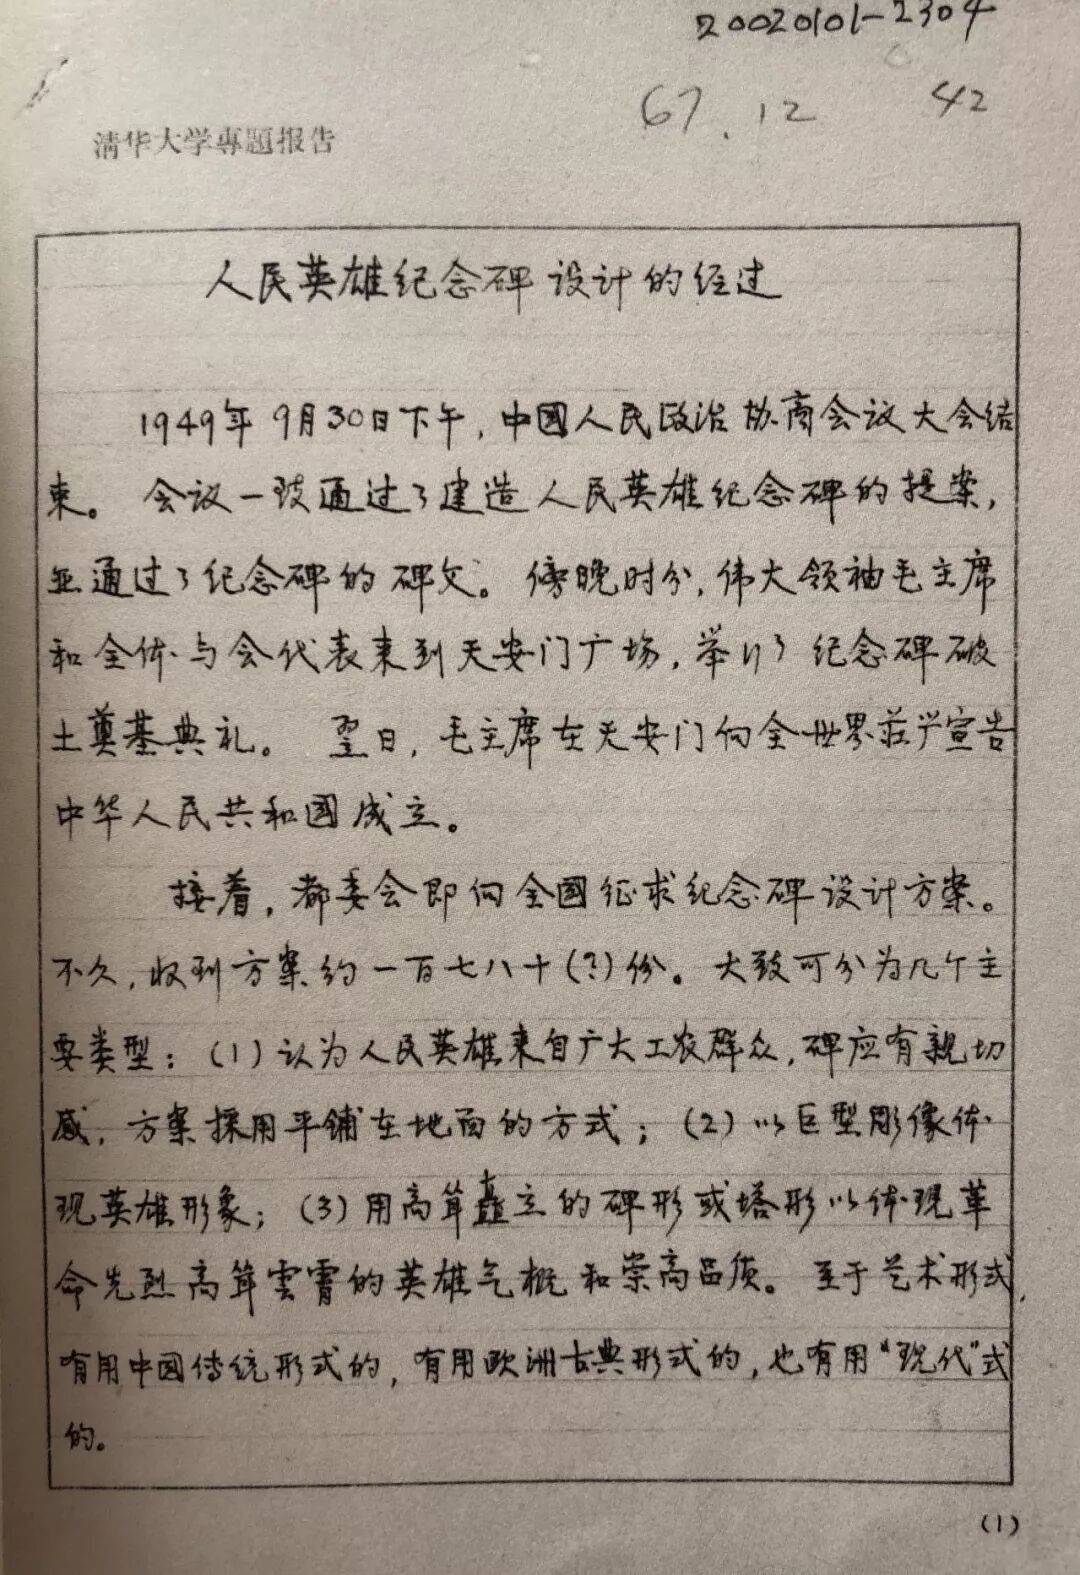 20020101-2304
67.12 42
清华大学專題报告
人民英雄纪念碑设计的经过
1949年9月30日下午，中國人民政治协商会议大会结
束。会议一致通过了建造人民英雄纪念碑的提案，
並通过了纪念碑的碑文。傍晚时分，伟大领袖毛主席
和全体与会代表来到天安门广场，举行了纪念碑破
土奠基典礼。翌日，毛主席在天安门向全世界莊严宣告
中华人民共和國成立。
接着，都委会即向全國征求纪念碑设计方案。
不久，收到方案约一百七八十（？）份。大致可分为几个主
要类型：（1）认为人民英雄来自广大工农群众，碑应有親切
感，方案採用平铺在地面的方式；（2）以巨型彫像体
现英雄形象；（3）用高耸矗立的碑形或塔形以体现革
命先烈高耸雲霄的英雄气概和崇高品质。至于艺术形式，
有用中國传统形式的，有用欧洲古典形式的，也有用“现代”式
的。
（1）